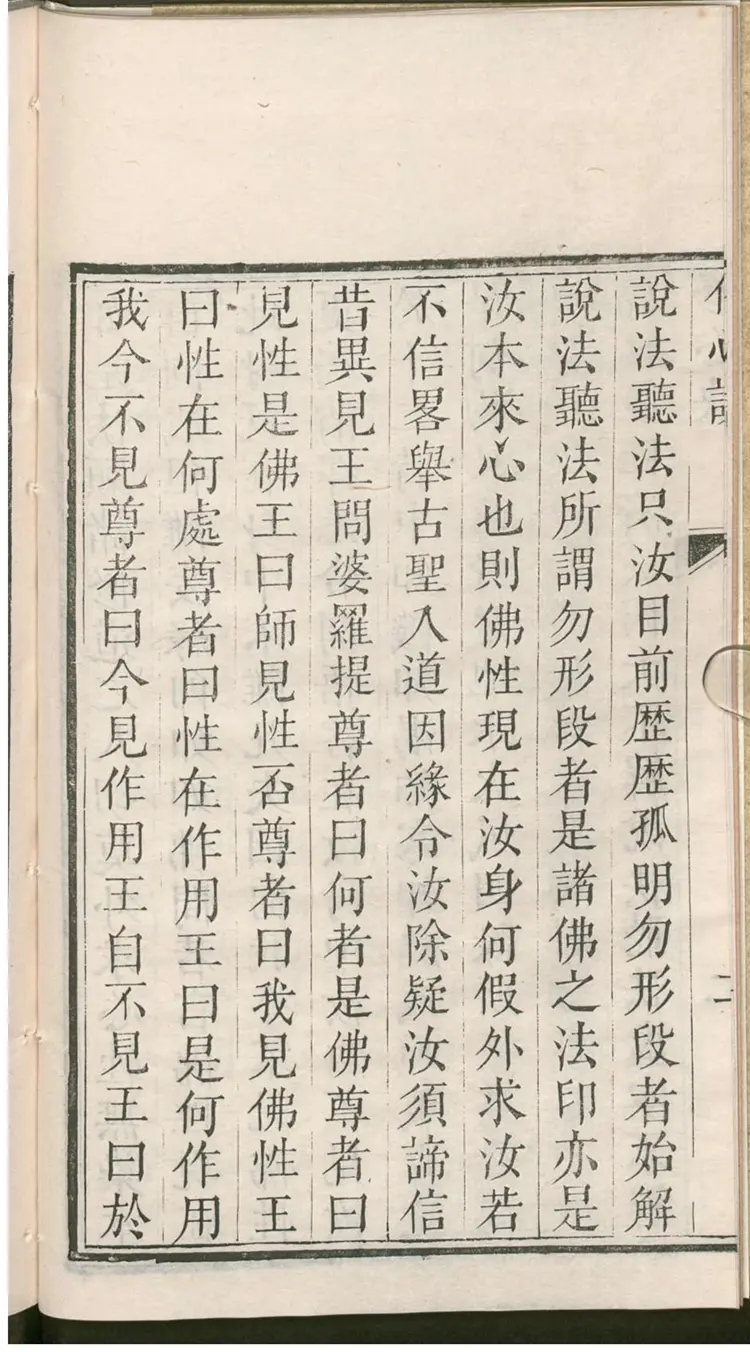 說法聽法只汝目前歷歷孤明勿形段者始解
說法聽法所謂勿形段者是諸佛之法印亦是
汝本來心也則佛性現在汝身何假外求汝若
不信畧舉古聖入道因緣令汝除疑汝須諦信
昔異見王問婆羅提尊者曰何者是佛尊者曰
見性是佛王曰師見性否尊者曰我見佛性王
曰性在何處尊者曰性在作用王曰是何作用
我今不見尊者曰今見作用王自不見王曰於